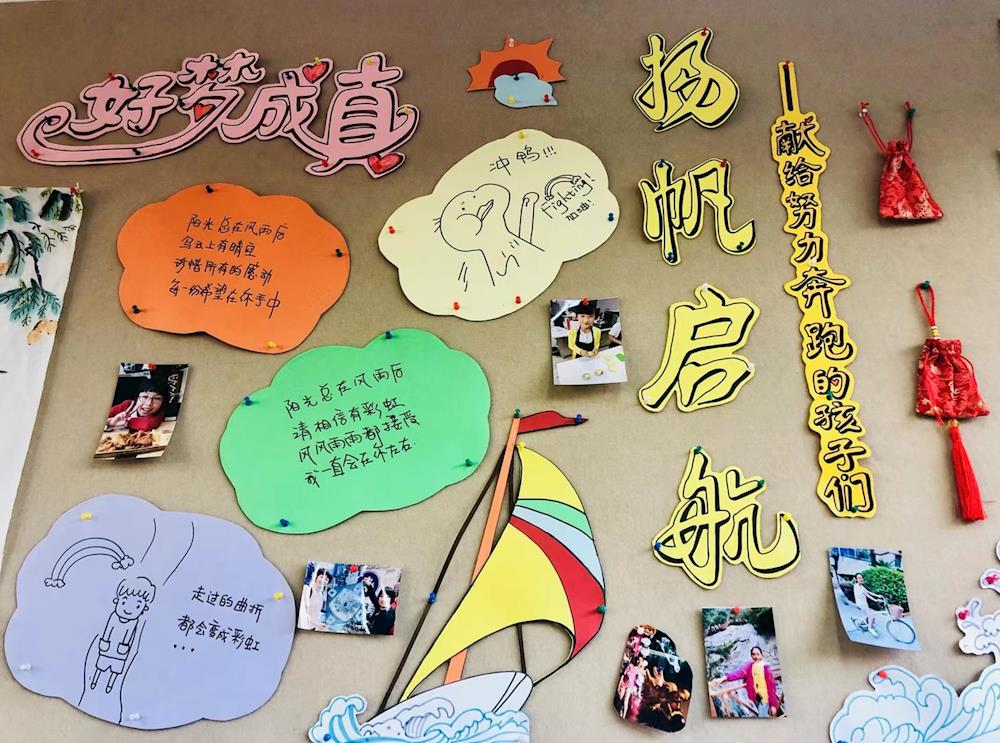 好梦成真
扬帆启航
献给努力奔跑的孩子们
冲鸭!!!
Fighting!
加油!
阳光总在风雨后
乌云上有晴空
珍惜所有的感动
每一份希望在你手中
阳光总在风雨后
请相信有彩虹
风风雨雨都接受
我一直会在你左右
走过的曲折
都会变成彩虹
...